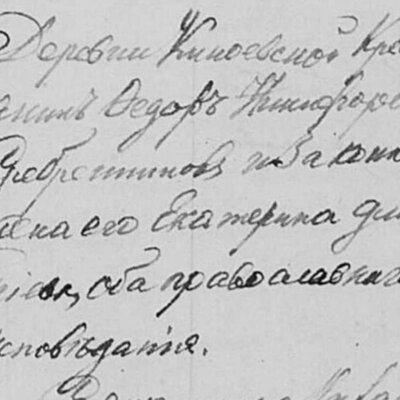 Деревни Киноевской Кре
анинъ Ѳедоръ Никифоро
Серебренниковъ и Законн
жена его Екатерина Дми
оба православнаго
исповѣданія.